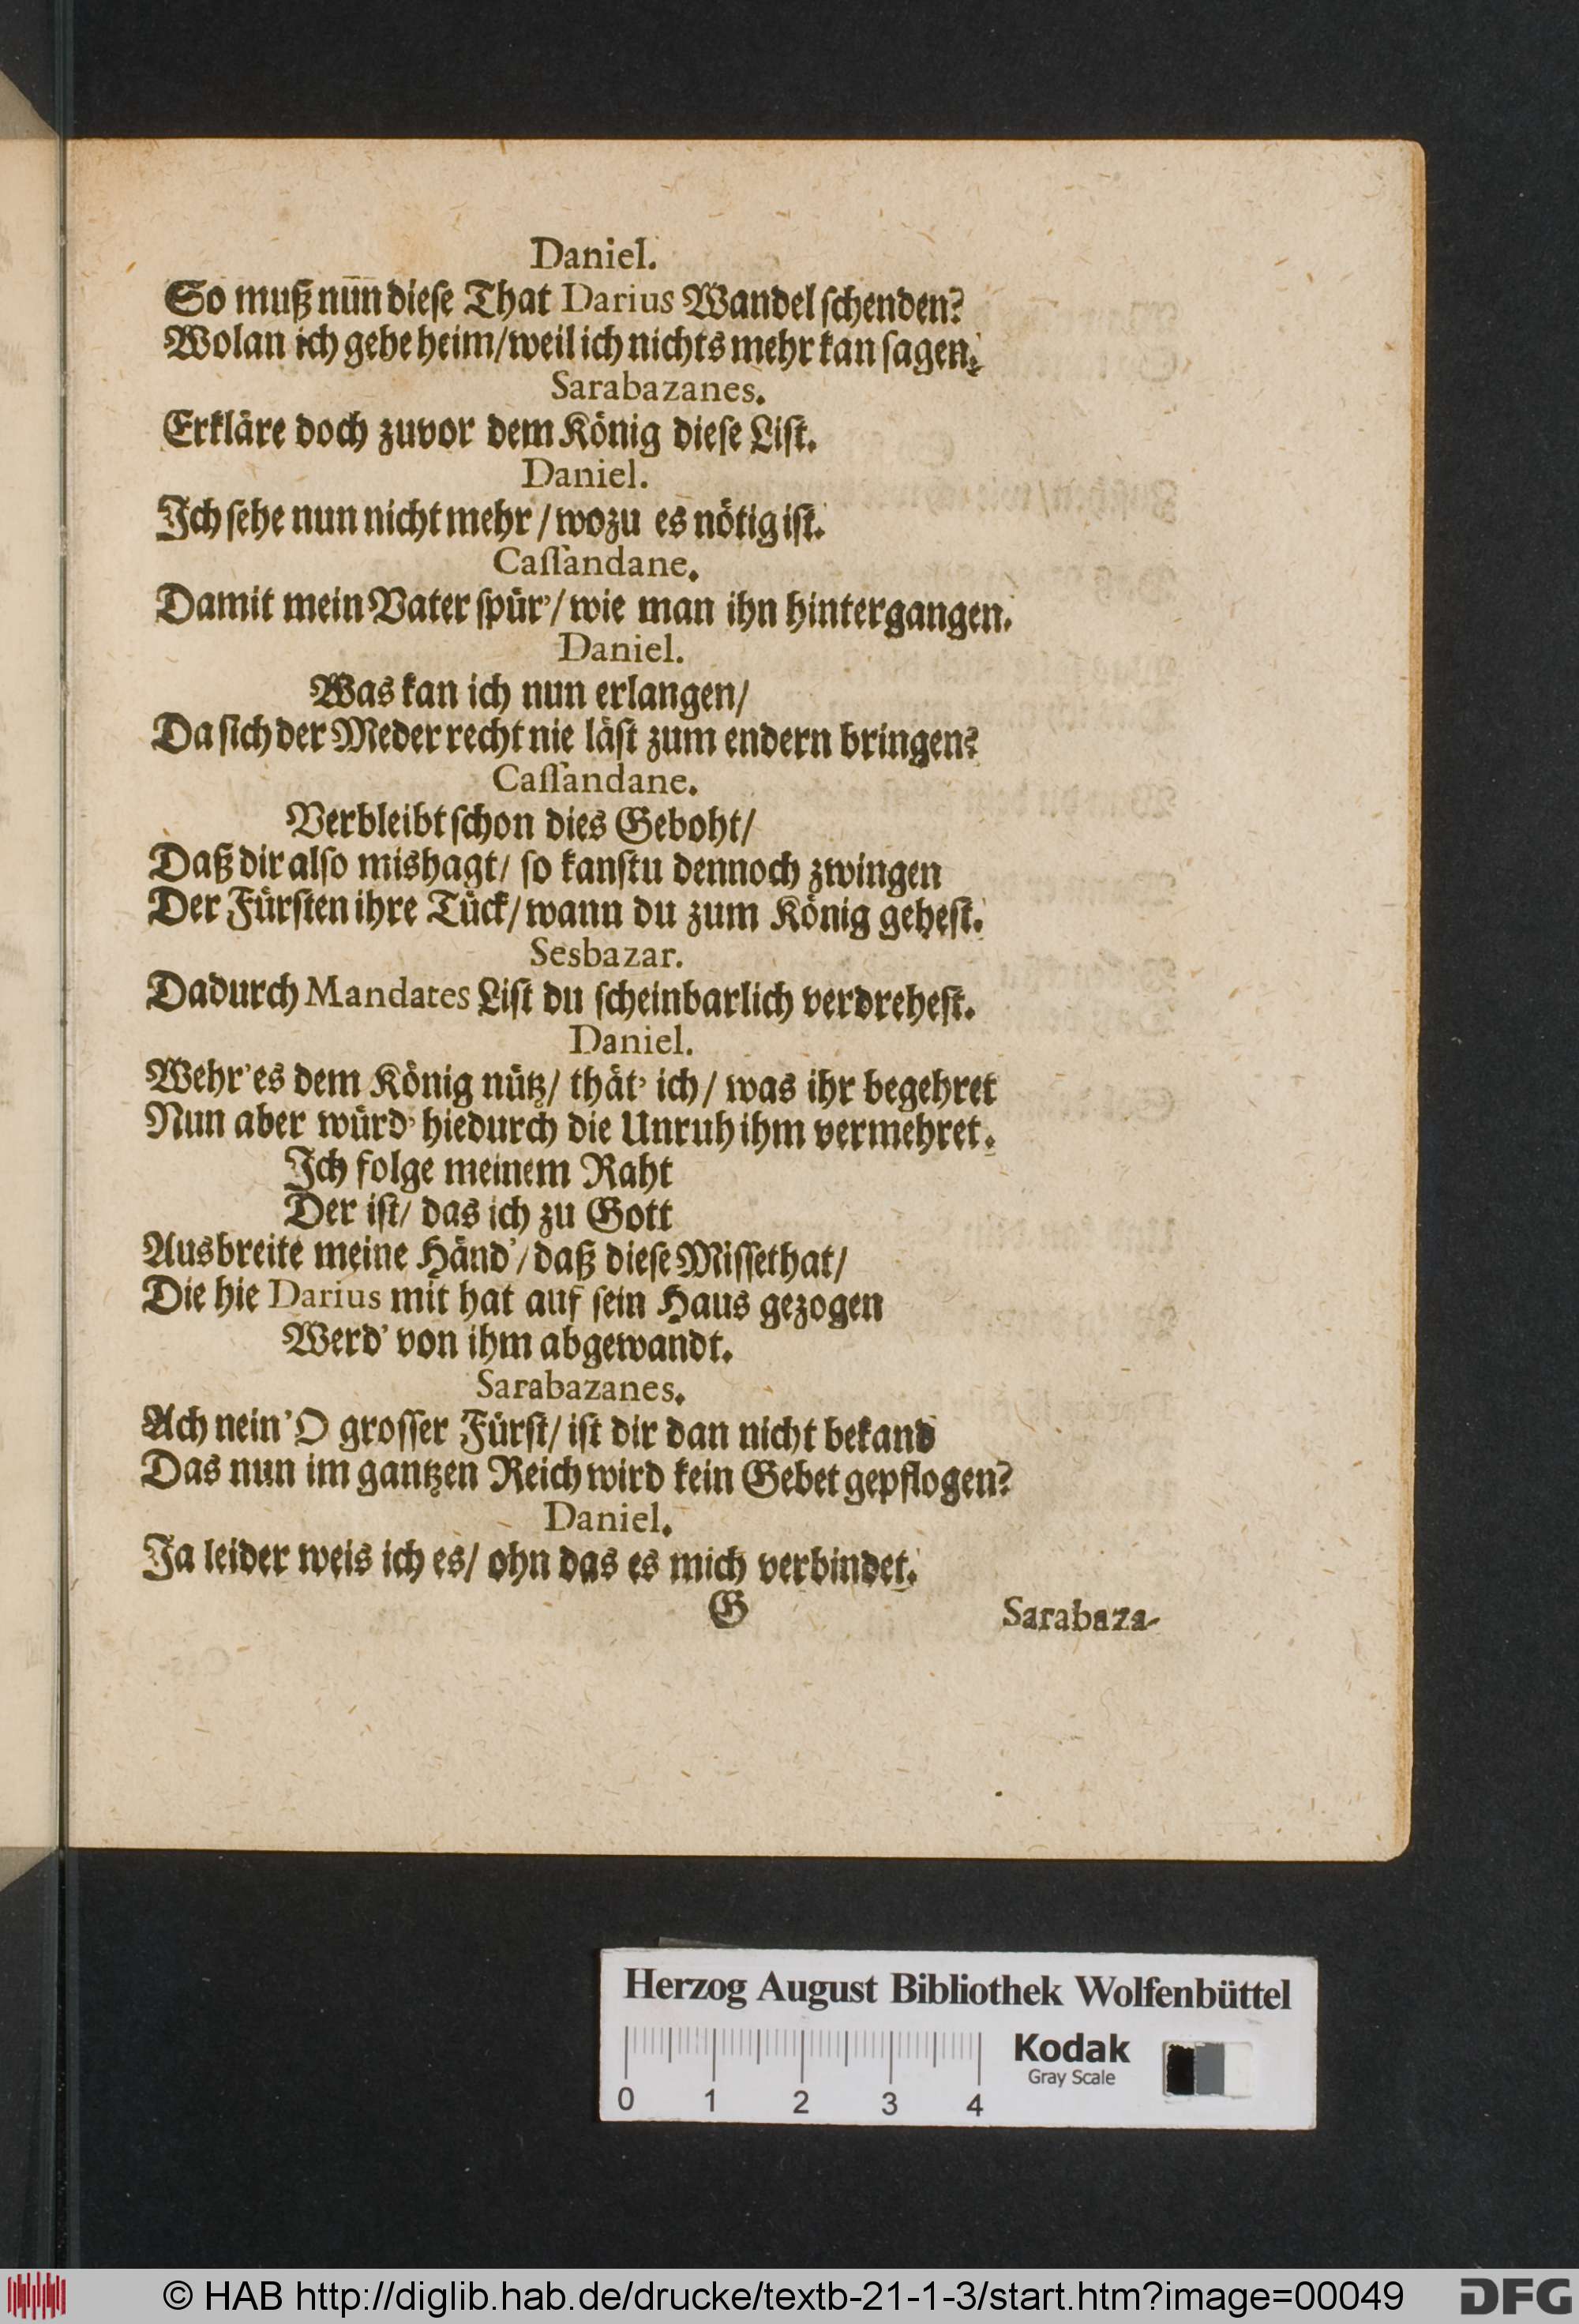 Daniel.
So muß nūn dieſe That Darius Wandel ſchenden?
Wolan ich gehe heim/weil ich nichts mehr kan ſagen.
Sarabazanes.
Erkläre doch zuvor dem König dieſe Liſt.
Daniel.
Ich ſehe nun nicht mehr / wozu es nötig iſt.
Caſſandane.
Damit mein Vater ſpür'/ wie man ihn hintergangen.
Daniel.
Was kan ich nun erlangen/
Da ſich der Meder recht nie läſt zum endern bringen?
Caſſandane.
Verbleibt ſchon dies Geboht/
Daß dir alſo mishagt/ ſo kanſtu dennoch zwingen
Der Fürſten ihre Tück/ wann du zum König geheſt.
Sesbazar.
Dadurch Mandates Liſt du ſcheinbarlich verdreheſt.
Daniel.
Wehr' es dem König nütz/ thät' ich/ was ihr begehret
Nun aber würd' hiedurch die Unruh ihm vermehret.
Ich folge meinem Raht
Der iſt/ das ich zu Gott
Ausbreite meine Händ'/ daß dieſe Miſſethat/
Die hie Darius mit hat auf ſein Haus gezogen
Werd' von ihm abgewandt.
Sarabazanes.
Ach nein' O groſſer Fürſt/ iſt dir dan nicht bekand
Das nun im gantzen Reich wird kein Gebet gepflogen?
Daniel.
Ja leider weis ich es/ ohn das es mich verbindet.
G Sarabaza-
Herzog August Bibliothek Wolfenbüttel
Kodak
Gray Scale
0 1 2 3 4
© HAB http://diglib.hab.de/drucke/textb-21-1-3/start.htm?image=00049
DFG